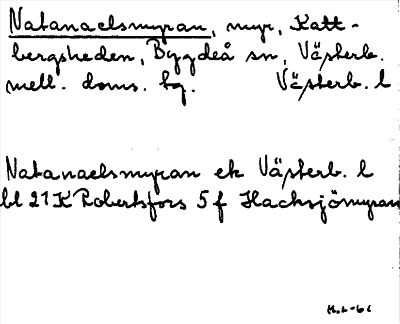 Natanaelsmyran, myr, Katt-
bergsheden, Bygdeå sn, Västerb.
mell. doms. bg. Västerb. l
Natanaelsmyran ek Västerb. l
bl 21K Robertsfors 5f Hacksjömyran